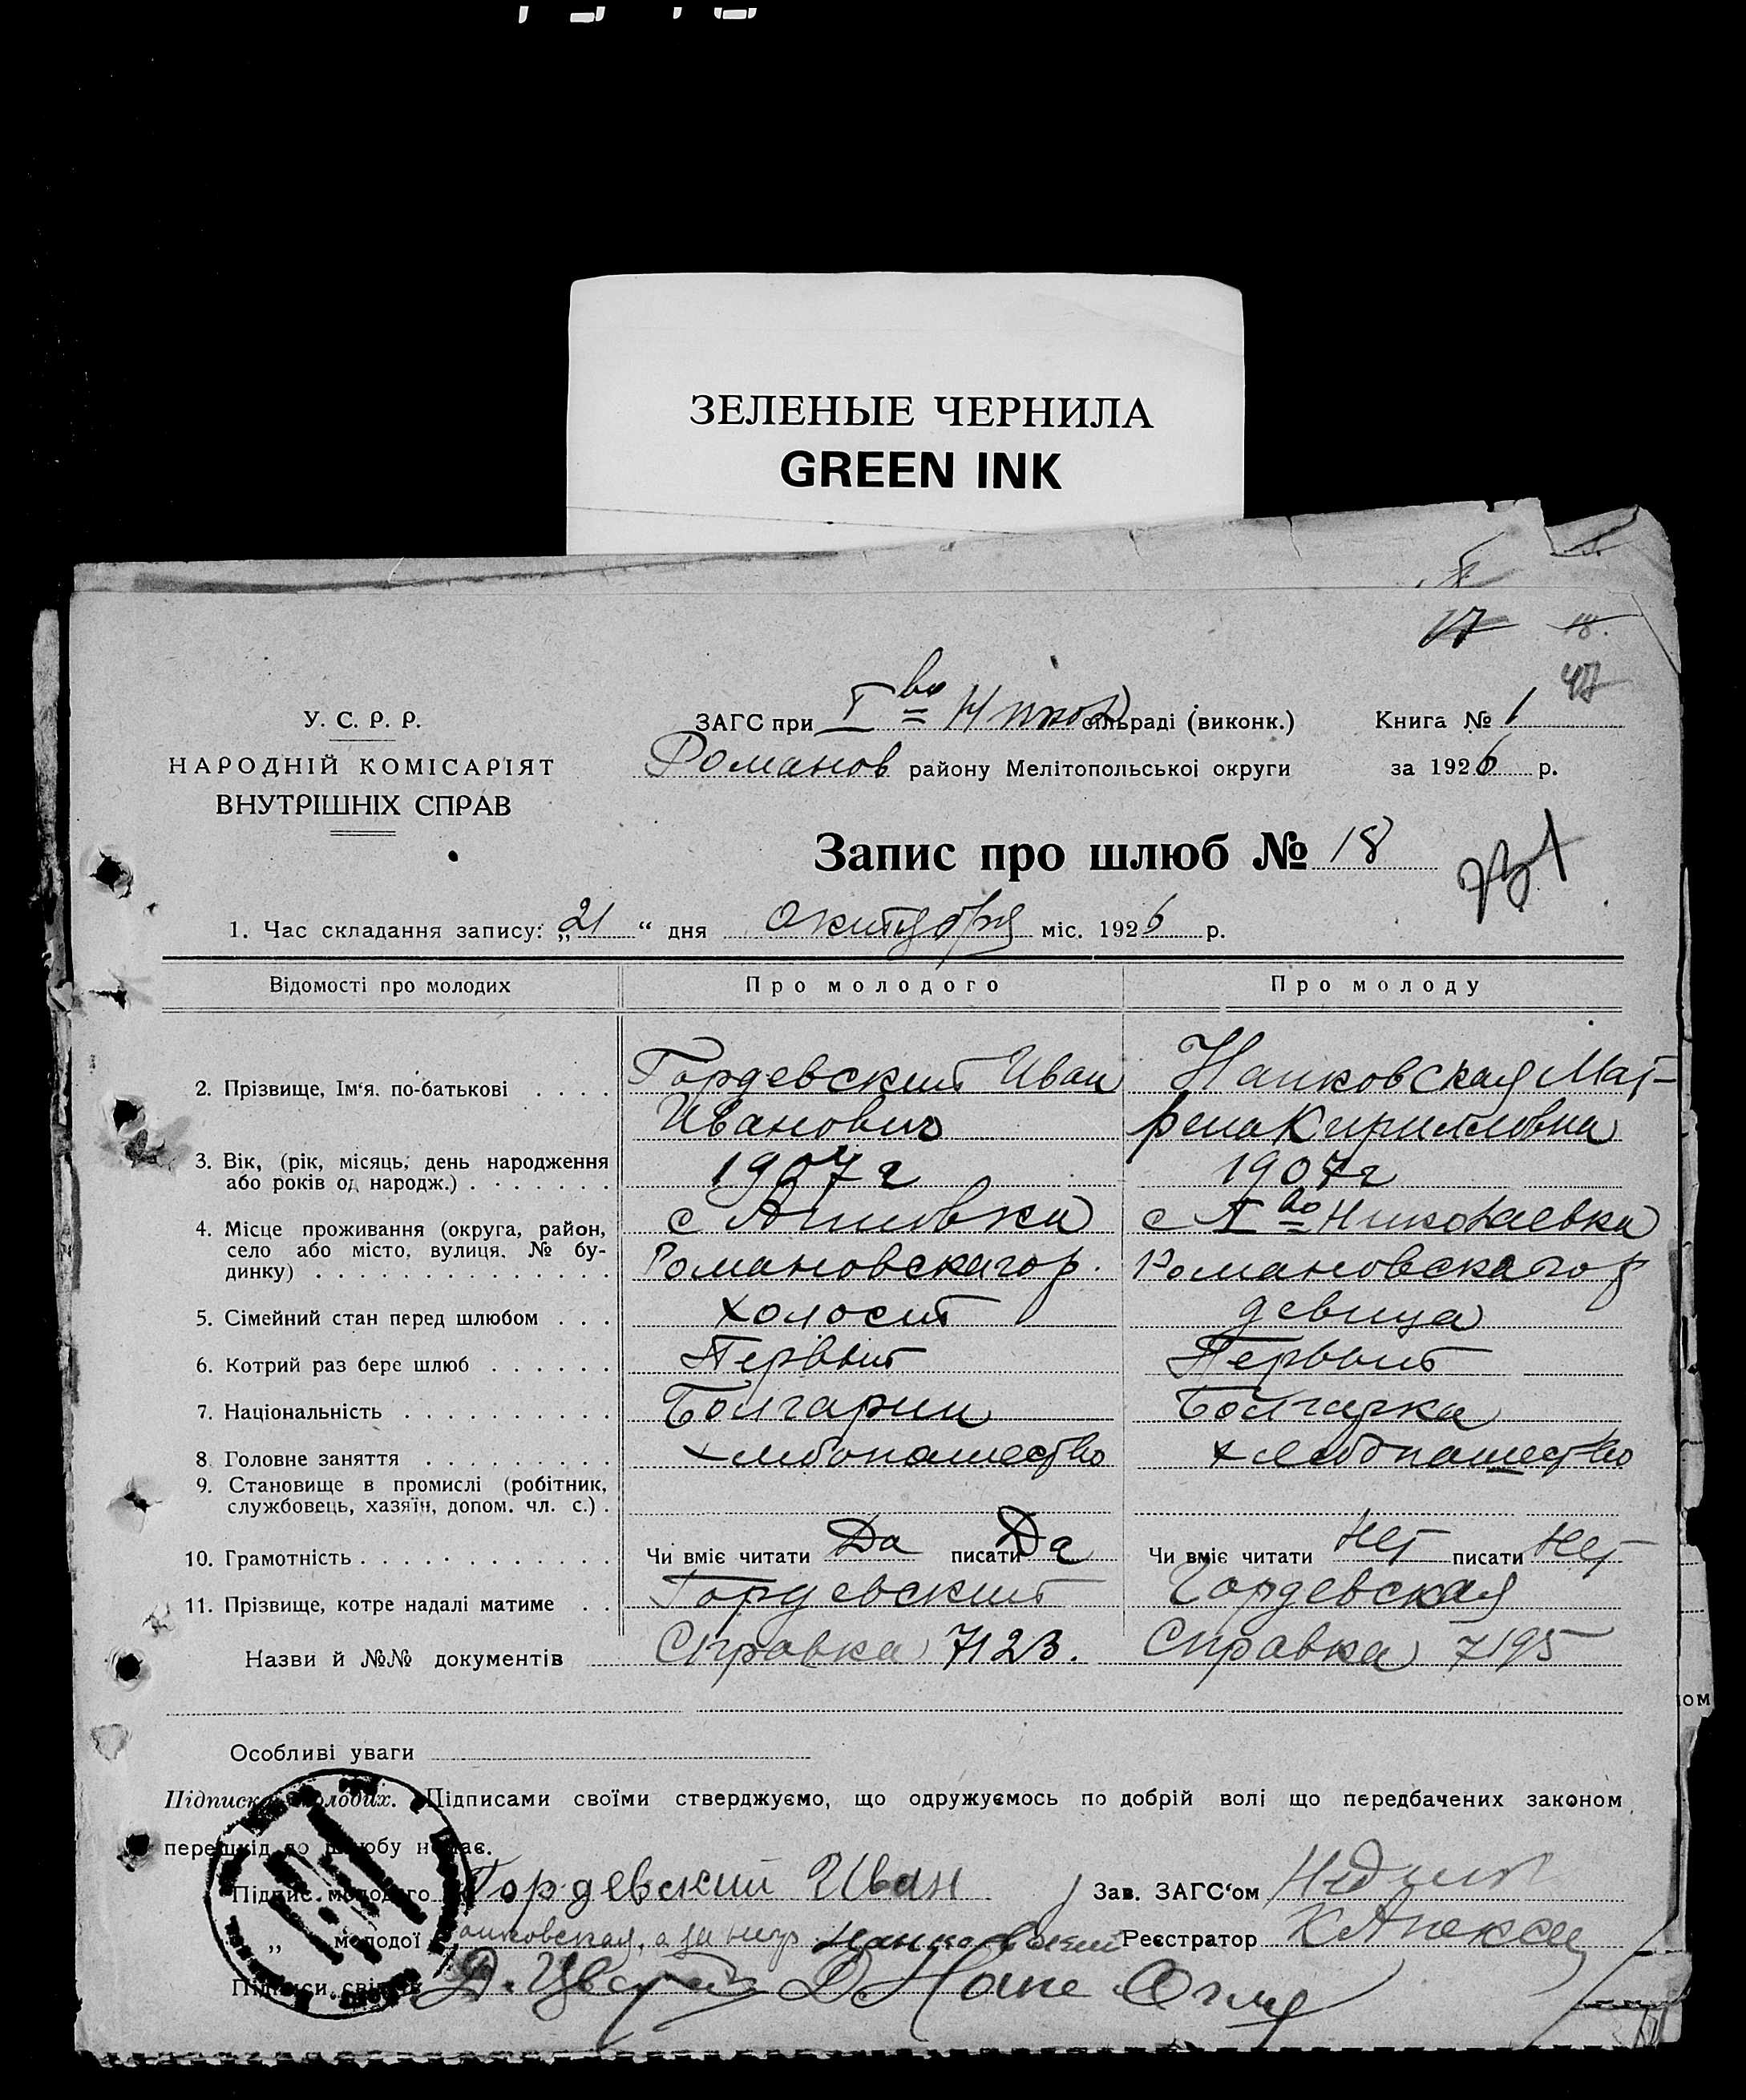 ЗЕЛЕНЫЕ ЧЕРНИЛА
GREEN INK
17 18.
47
У. С. Р. Р.
НАРОДНІЙ КОМІСАРІЯТ
ВНУТРІШНІХ СПРАВ
ЗАГС при I во Никол сільраді (виконк.)
Романов району Мелітопольської округи
Книга № 1
за 1926 р.
Запис про шлюб № 18
1. Час складання запису: „21“ дня октября міс. 1926 р.
Відомості про молодих Про молодого Про молоду
2. Прізвище, Ім'я, по-батькові Гордевский Иван Нанковская Мат-
Иванович рена Кирилловна
3. Вік, (рік, місяць, день народження 1907 г 1907 г
або років од народж.)
4. Місце проживання (округа, район, с с I во Николаевка
село або місто, вулиця, № бу- Романовскаго р. Романовскаго р
динку)
5. Сімейний стан перед шлюбом холост девица
6. Котрий раз бере шлюб Первый Первый
7. Національність Болгарин Болгарка
8. Головне заняття хлебопашество хлебопашество
9. Становище в промислі (робітник,
службовець, хазяїн, допом. чл. с.)
10. Грамотність Чи вміє читати Да писати Да Чи вміє читати Нет писати Нет
11. Прізвище, котре надалі матиме Гордевский Гордевская
Назви й №№ документів Справка 7123. Справка 7195
ом
Особливі уваги
Підписка молодих. Підписами своїми стверджуємо, що одружуємось по добрій волі що передбачених законом
перешкід до шлюбу немає.
Підпис молодого Гордевский Иван Зав. ЗАГС'ом
„ молодої Нанковская, а за нея Нанковский Реєстратор
Підписи свідків Д.